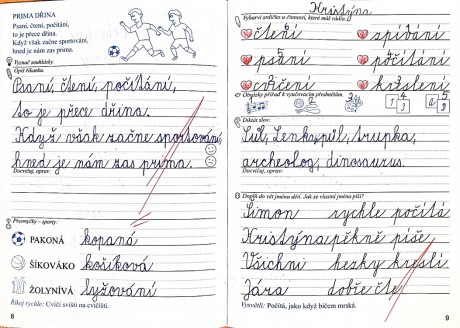 PRIMA DŘINA
Psaní, čtení, počítání,
to je přece dřina.
Když však začne sportování,
hned je nám zas prima.
Vyznač souhlásky.
Opiš říkanku.
Psaní, čtení, počítání,
to je přece dřina.
Když však začne sportování,
hned je nám zas prima.
Docvičuj, oprav:
Přesmyčky – sporty:
PAKONÁ kopaná
ŠÍKOVÁKO košíková
ŽOLYNÍVÁ lyžování
Říkej rychle: Cvičí svišti na cvičišti.
8
Kristýna
Vybarvi srdíčko u činností, které máš rád/a.
čtení zpívání
psaní počítání
cvičení kreslení
Obrázky přiřaď k vyučovacím předmětům.
2 3 4 5
Diktát slov:
Sůl, Lenka, půl, trupka,
archeolog, dinosaurus.
Docvičuj, oprav:
Doplň do vět jména dětí. Jak se vlastní jména píší?
Šimon rychle počítá
Kristýna pěkně píše
Všichni hezky kreslí
Jára dobře čte
Vysvětli: Počítá, jako když bičem mrská.
9